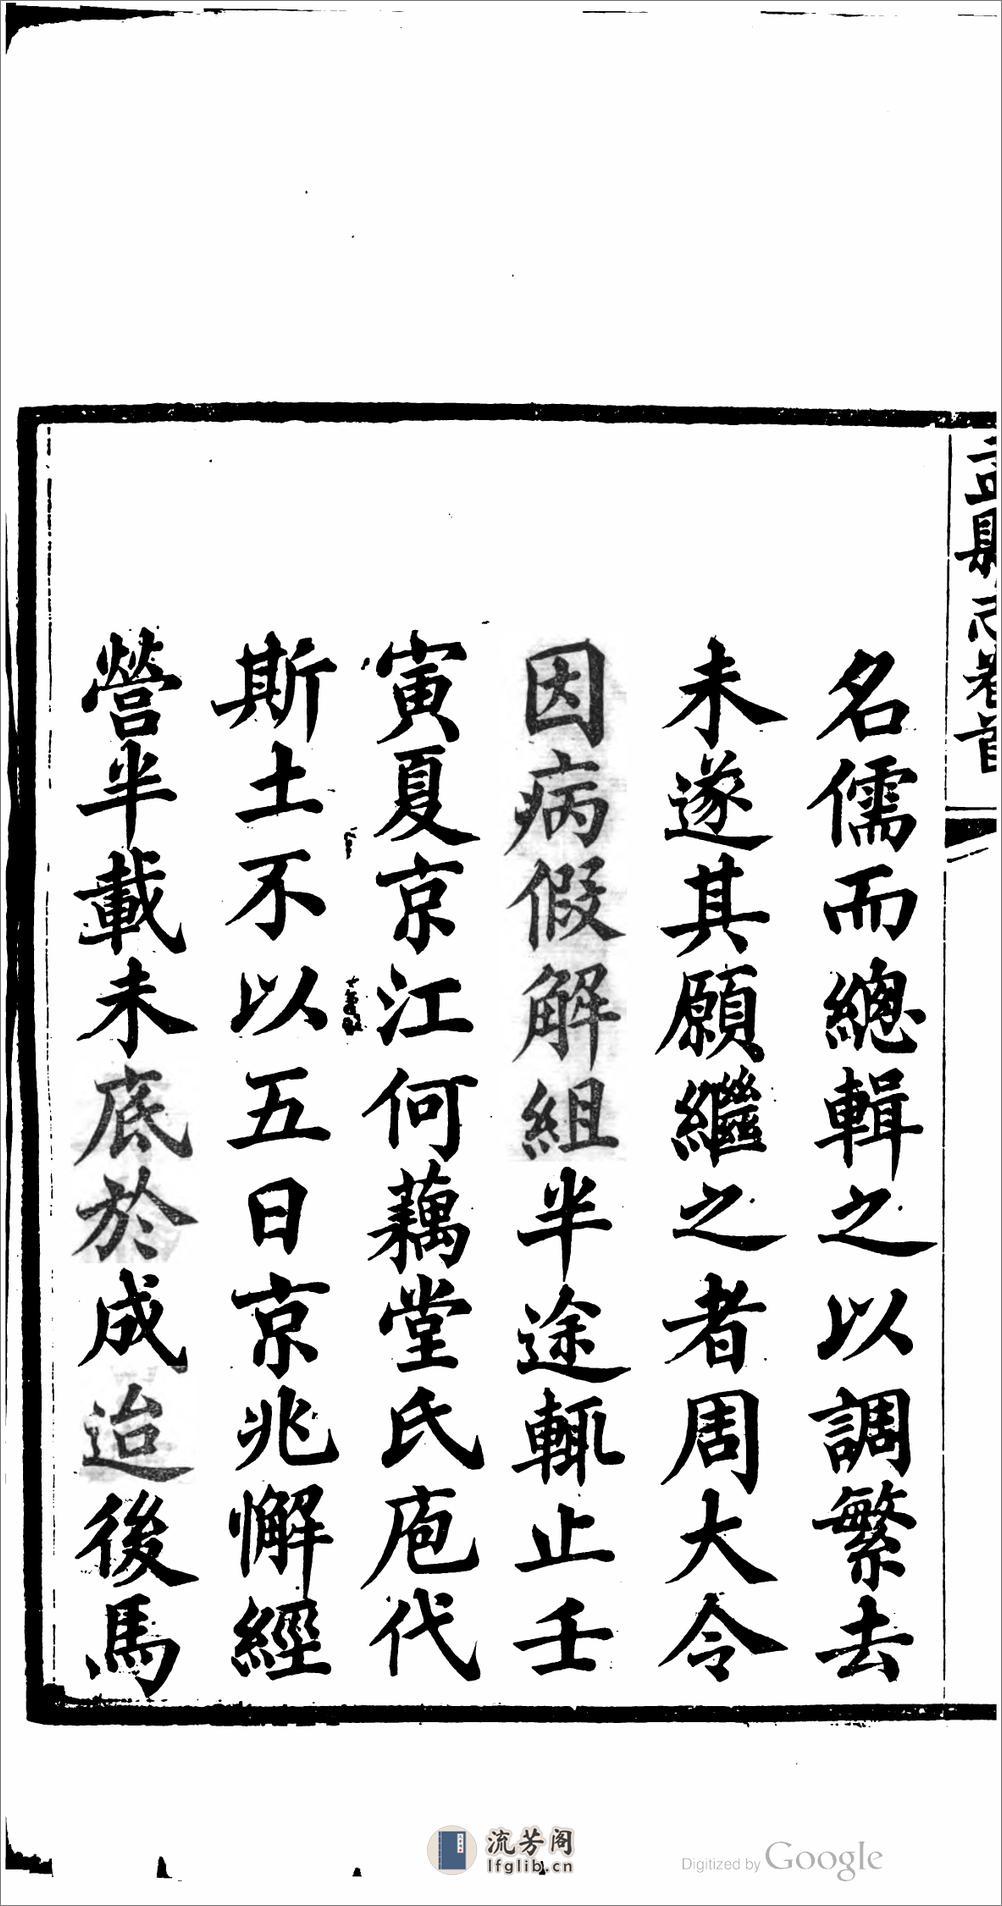 名儒而總輯之以調繁去
未遂其願繼之者周大令
因病假解組半途輒止壬
寅夏京江何藕堂氏庖代
斯土不以五日京兆懈經
營半載未底於成迨後馬
縣志卷首
流芳阁
lfglib.cn
Digitized by Google